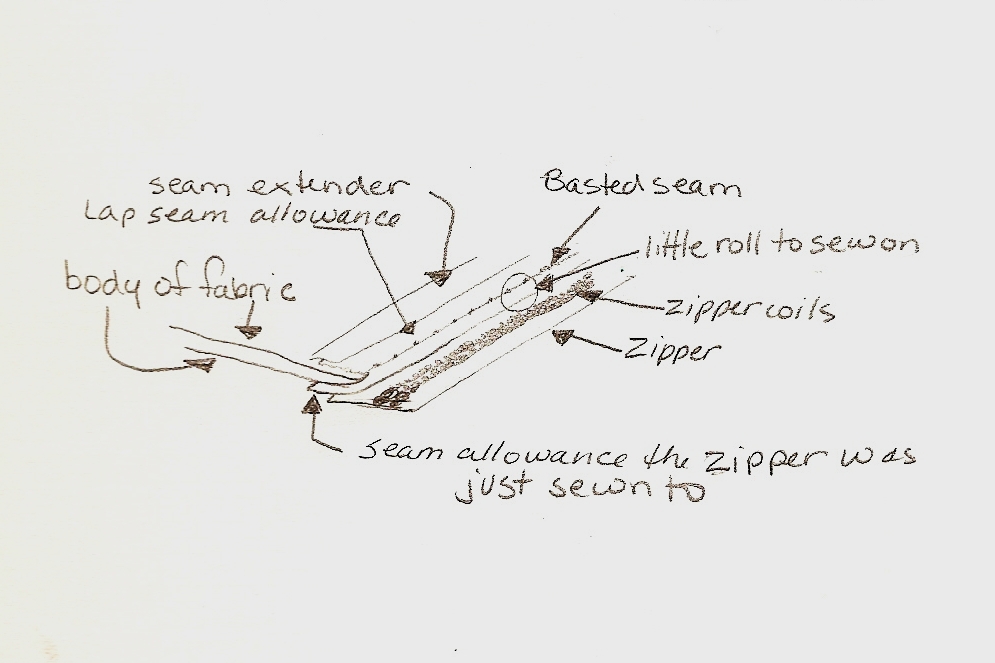 seam extender
Lap seam allowance
body of fabric
Basted seam
little roll to sew on
zipper coils
Zipper
seam allowance the zipper was
just sewn to